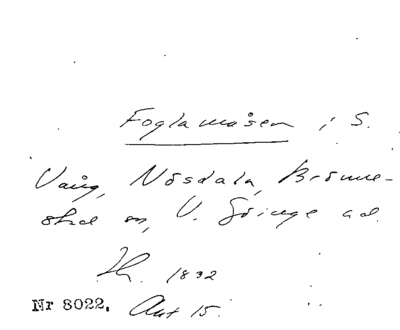 Foglamåsen i S.
Vång, Nösdala, Brönne-
stad sn, V. Göinge hd.
1832
Nr 8022. Akt 15.